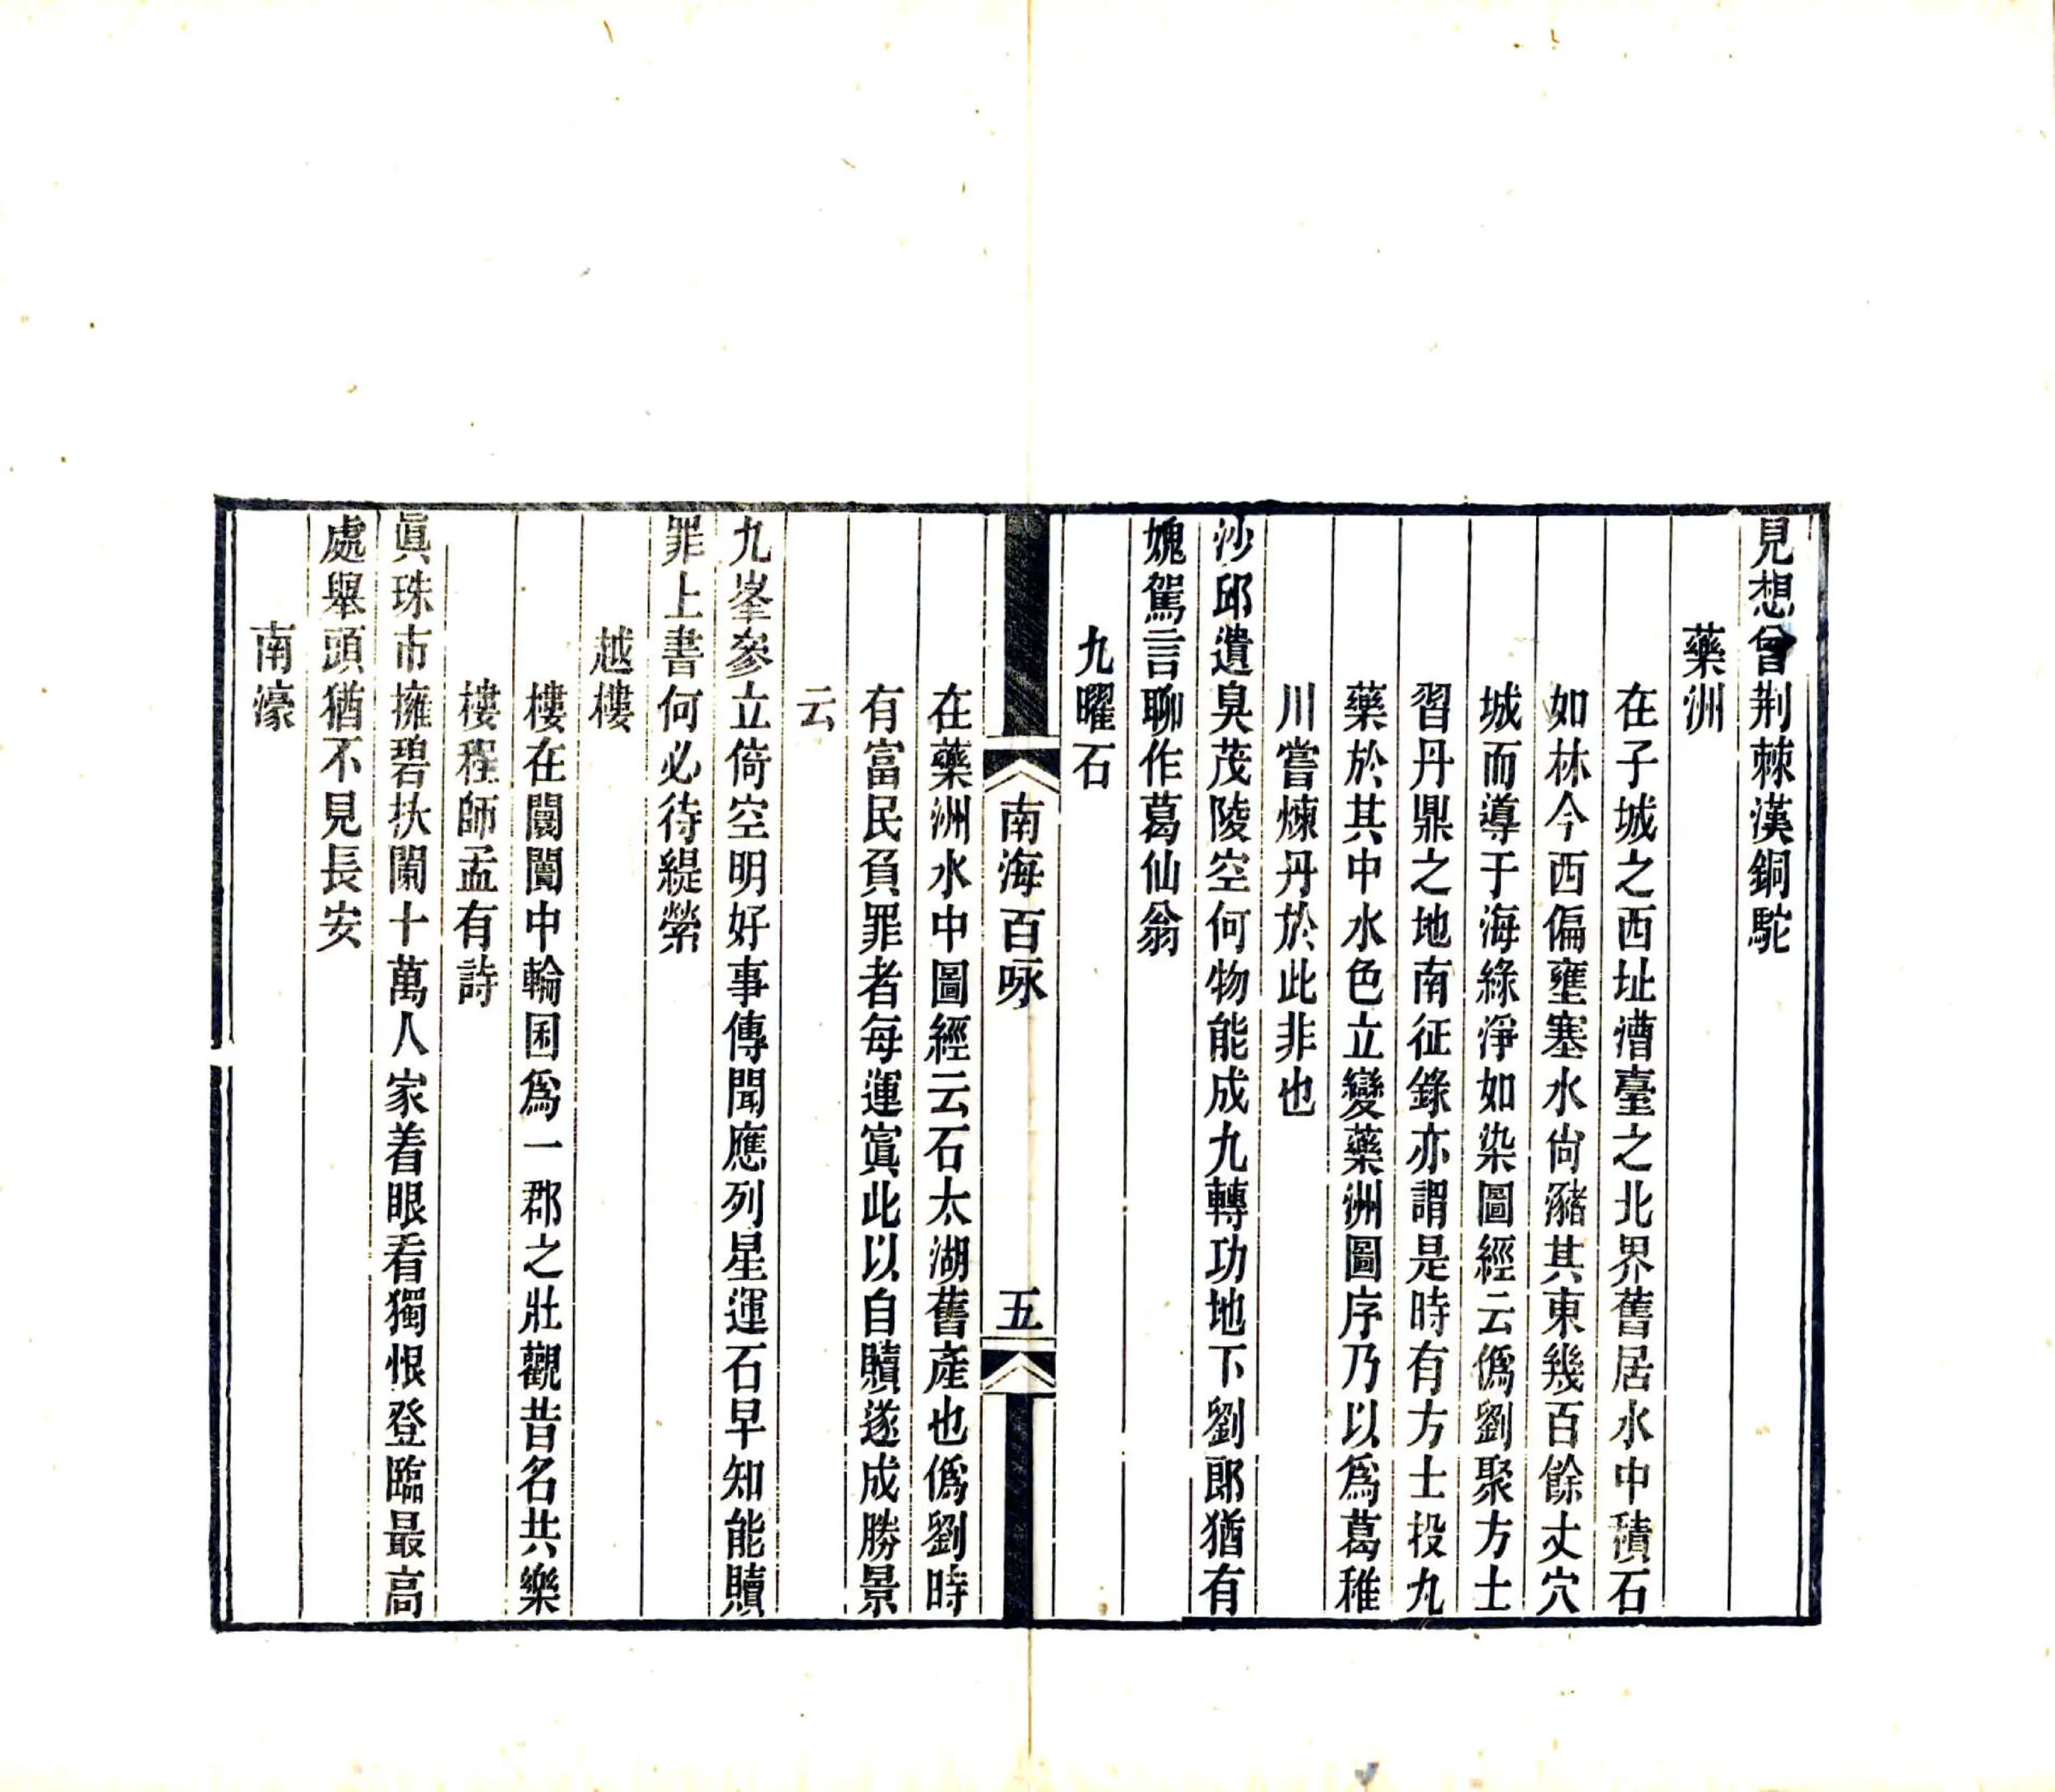 見想曾荆棘漢銅駝
藥洲
在子城之西址漕臺之北界舊居水中積石
如林今西偏壅塞水尙瀦其東幾百餘丈穴
城而導于海綠淨如染圖經云僞劉聚方士
習丹鼎之地南征錄亦謂是時有方士投九
藥於其中水色立變藥洲圖序乃以爲葛稚
川嘗煉丹於此非也
沙邱遺臭茂陵空何物能成九轉功地下劉郎猶有
媿駕言聊作葛仙翁
九曜石
南海百咏
五
在藥洲水中圖經云石太湖舊產也僞劉時
有富民負罪者每運寘此以自贖遂成勝景
云
九峯參立倚空明好事傳聞應列星運石早知能贖
罪上書何必待緹縈
越樓
樓在闤闠中輪囷爲一郡之壯觀昔名共樂
樓程師孟有詩
眞珠市擁碧扒闌十萬人家着眼看獨恨登臨最高
處舉頭猶不見長安
南濠